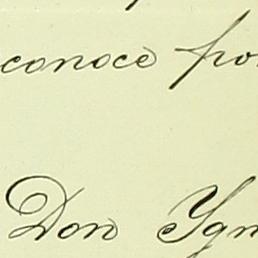 conoce por
Don Ygn